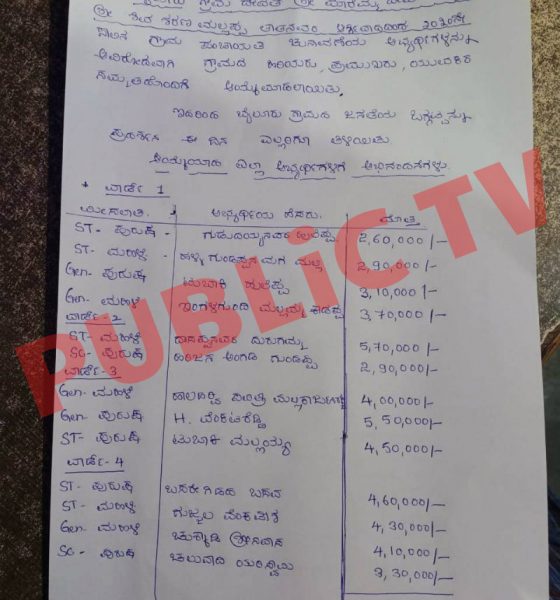 ಗ್ರಾಮ ದೇವತೆ ಶ್ರೀ ಮಾರಮ್ಮ
ಶ್ರೀ ಶಿವ ಶರಣ ಮಲ್ಲಪ್ಪ ತಾತನವರ
ಗ್ರಾಮ ಪಂಚಾಯತಿ ಚುನಾವಣೆಯ ಅಭ್ಯರ್ಥಿಗಳನ್ನು
ಅವಿರೋಧವಾಗಿ ಗ್ರಾಮದ ಹಿರಿಯರು, ಪ್ರಮುಖರು, ಯುವಕರ
ಸಮ್ಮತದೊಂದಿಗೆ ಆಯ್ಕೆಮಾಡಲಾಯಿತು.
ಇದರಿಂದ ಬೈಲೂರು ಗ್ರಾಮದ ಜನತೆಯ ಒಗ್ಗಟ್ಟನ್ನು
ಪ್ರದರ್ಶಿಸಿ ಈ ದಿನ ಎಲ್ಲರಿಗೂ ತಿಳಿಯಿತು
ಆಯ್ಕೆಯಾದ ಎಲ್ಲಾ ಅಭ್ಯರ್ಥಿಗಳಿಗೆ ಅಭಿನಂದನೆಗಳು.
* ವಾರ್ಡ್ 1
ಮೀಸಲಾತಿ. ಅಭ್ಯರ್ಥಿಯ ಹೆಸರು. ಮೊತ್ತ
ST- ಪುರುಷ 2,60,000/-
ST- ಮಹಿಳೆ ಹಳ್ಳಿ ಗುಂಡಪ್ಪನ ಮಗ ಮಲ್ಲ 2,90,000/-
Gen- ಪುರುಷ ಟುಬಾಕಿ ಹುಲೆಪ್ಪ 3,10,000/-
Gen- ಮಹಿಳೆ ಮಲ್ಲಮ್ಮ 3,70,000/-
ವಾರ್ಡ್ - 2
ST- ಮಹಿಳೆ ದಾಸಪ್ಪನವರ ದುರುಗಮ್ಮ 5,70,000/-
SC- ಪುರುಷ ಅಂಗಡಿ ಗುಂಡಪ್ಪ 2,90,000/-
ವಾರ್ಡ್ -3
Gen- ಮಹಿಳೆ 4,00,000/-
Gen- ಪುರುಷ H. ವೆಂಕಟರೆಡ್ಡಿ 5,50,000/-
ST- ಪುರುಷ ಟುಬಾಕಿ ಮಲ್ಲಯ್ಯ 4,50,000/-
ವಾರ್ಡ್-4
ST- ಪುರುಷ ಬಸರೀಗಿಡದ ಬಸವ 4,60,000/-
ST- ಮಹಿಳೆ ಗುಜ್ಜಲ ವೆಂಕಟೇಶ 4,30,000/-
Gen- ಮಹಿಳೆ ಶ್ರೀನಿವಾಸ 4,10,000/-
SC- ಪುರುಷ ಚಲುವಾದಿ 3,30,000/-
PUBLiC TV